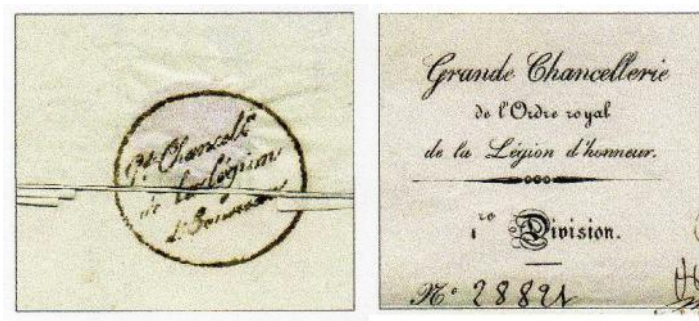 Gde Chancelie
de la Légion
d'honneur
Grande Chancellerie
de l'Ordre royal
de la Légion d'honneur.
1re Division.
N° 28821